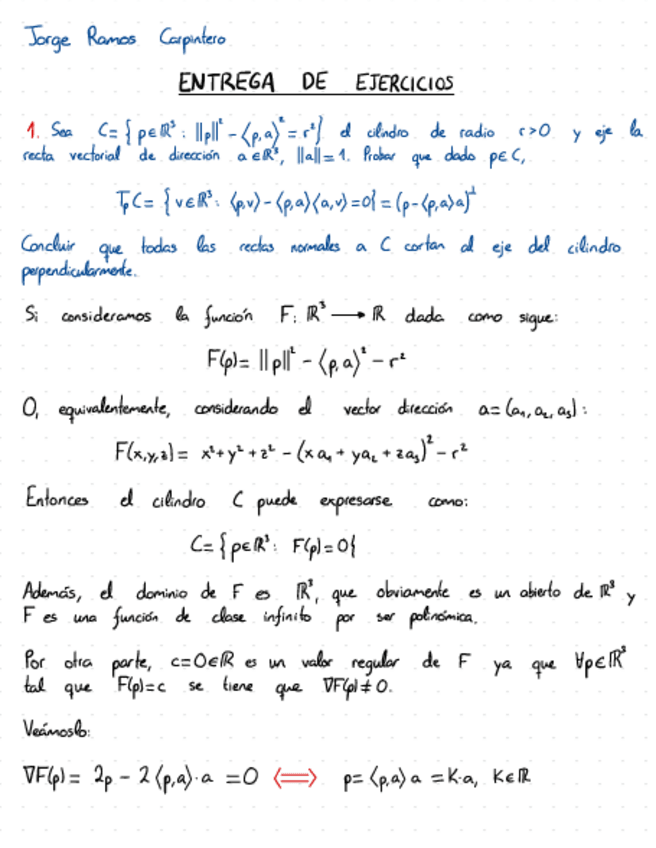 Jorge Ramos Carpintero
ENTREGA DE EJERCICIOS
1. Sea C={p∈ℝ³: ||p||²-⟨p,a⟩²=r²} el cilindro de radio r>0 y eje la
recta vectorial de dirección a∈ℝ³, ||a||=1. Probar que dado p∈C,
TₚC={v∈ℝ³: ⟨p,v⟩-⟨p,a⟩⟨a,v⟩=0}=(p-⟨p,a⟩a)^⊥
Concluir que todas las rectas normales a C cortan al eje del cilindro
perpendicularmente.
Si consideramos la función F: ℝ³ → ℝ dada como sigue:
F(p)= ||p||²-⟨p,a⟩²-r²
O, equivalentemente, considerando el vector dirección a=(a₁, a₂, a₃):
F(x,y,z)= x²+y²+z²-(xa₁+ya₂+za₃)²-r²
Entonces el cilindro C puede expresarse como:
C={p∈ℝ³: F(p)=0}
Además, el dominio de F es ℝ³, que obviamente es un abierto de ℝ³ y
F es una función de clase infinito por ser polinómica.
Por otra parte, c=0∈ℝ es un valor regular de F ya que ∀p∈ℝ³
tal que F(p)=c se tiene que ∇F(p)≠0.
Veámoslo:
∇F(p)= 2p-2⟨p,a⟩·a =0 ⟺ p=⟨p,a⟩a =K·a, K∈ℝ